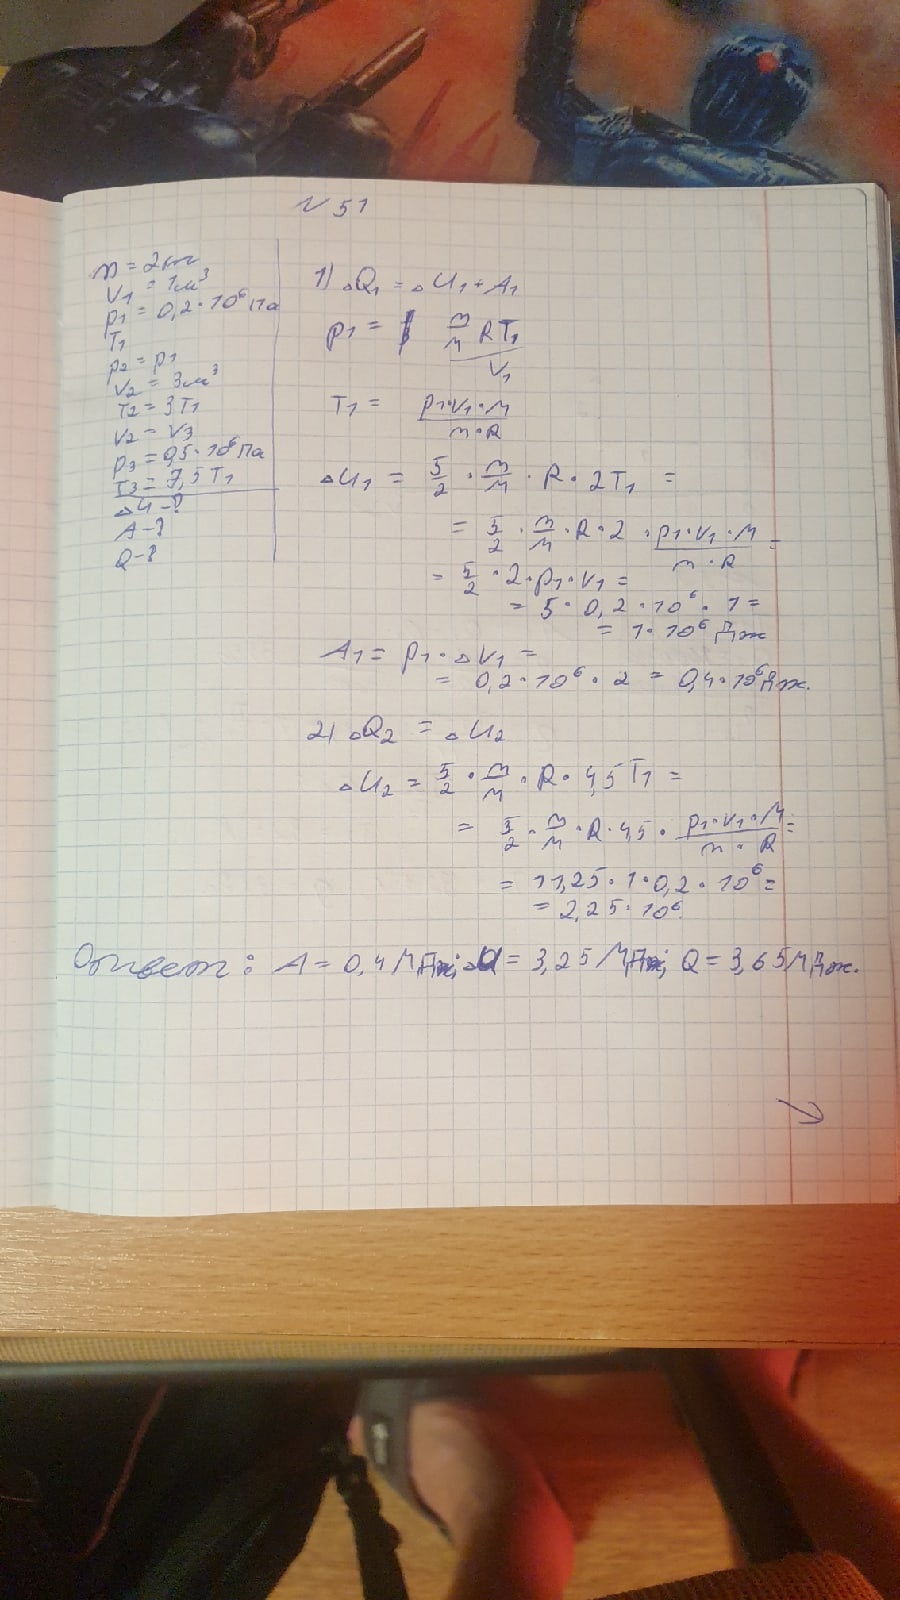 N 51
m = 2 кг
V₁ = 1 м³
p₁ = 0,2 · 10⁶ Па
T₁
p₂ = p₁
V₂ = 3 м³
T₂ = 3T₁
V₂ = V₃
p₃ = 0,5 · 10⁶ Па
T₃ = 7,5 T₁
ΔU - ?
A - ?
Q - ?
1) ΔQ₁ = ΔU₁ + A₁
p₁ = m/M RT₁ / V₁
T₁ = p₁·V₁·M / m·R
ΔU₁ = 5/2 · m/M · R · 2T₁ =
= 5/2 · m/M · R · 2 · p₁·V₁·M / m·R =
= 5/2 · 2 · p₁ · V₁ =
= 5 · 0,2 · 10⁶ · 1 =
= 1 · 10⁶ Дж
A₁ = p₁ · ΔV₁ =
= 0,2 · 10⁶ · 2 = 0,4 · 10⁶ Дж.
2) ΔQ₂ = ΔU₂
ΔU₂ = 5/2 · m/M · R · 4,5 T₁ =
= 5/2 · m/M · R · 4,5 · p₁·V₁·M / m·R =
= 11,25 · 1 · 0,2 · 10⁶ =
= 2,25 · 10⁶
Ответ: A = 0,4 МДж; ΔU = 3,25 МДж; Q = 3,65 МДж.